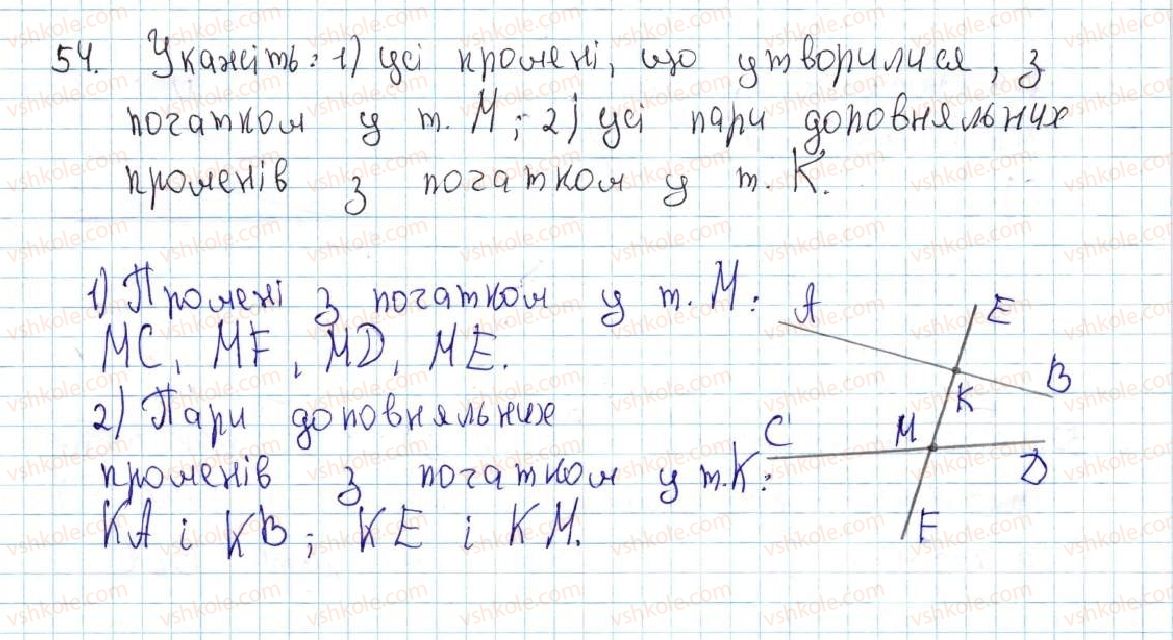 54. Укажіть: 1) усі промені, що утворилися, з
початком у т. М; 2) усі пари доповняльних
променів з початком у т. К.
1) Промені з початком у т. М:
МС, MF, MD, МЕ.
2) Пари доповняльних
променів з початком у т. К:
КА і КВ; КЕ і КМ.
A
E
B
K
C
M
D
F
vshkole.com